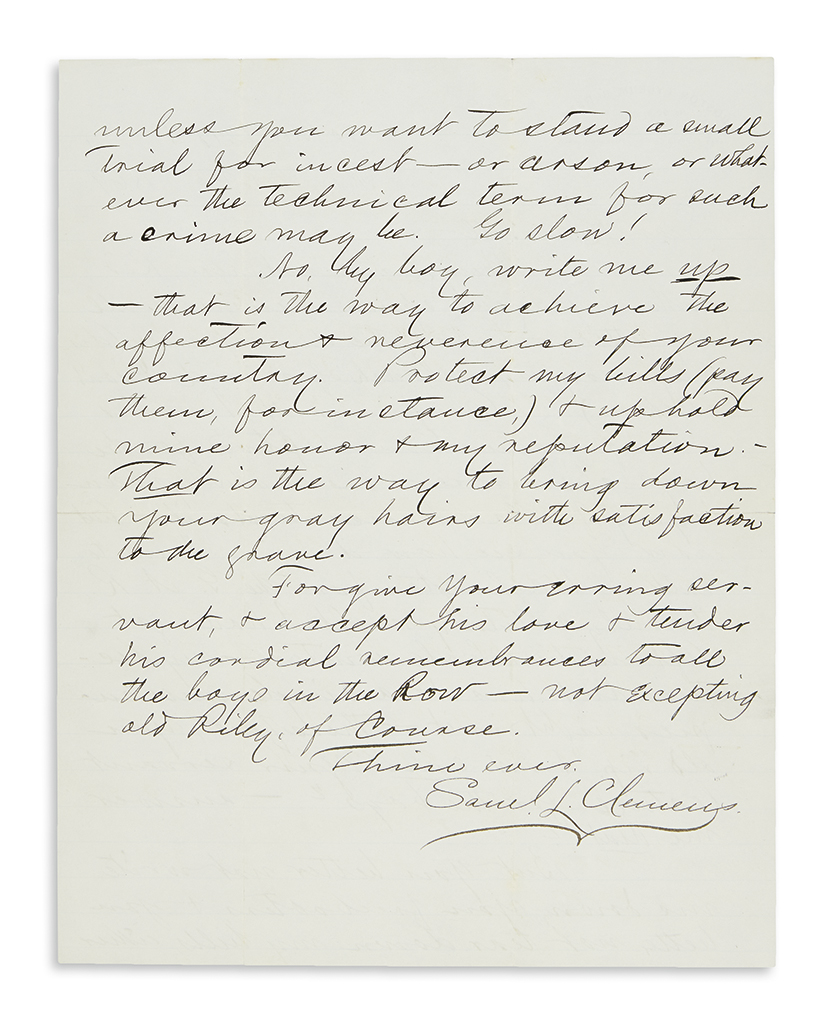 unless you want to stand a small
trial for incest — or arson, or what-
ever the technical term for such
a crime may be. Go slow!
No, my boy, write me up
— that is the way to achieve the
affection & reverence of your
country. Protect my bills (pay
them, for instance,) & uphold
mine honor & my reputation. —
That is the way to bring down
your gray hairs with satisfaction
to the grave.
Forgive your erring ser-
vant, & accept his love & tender
his cordial remembrances to all
the boys in the Row — not excepting
old Riley, of Course.
Thine ever.
Saml. L. Clemens.